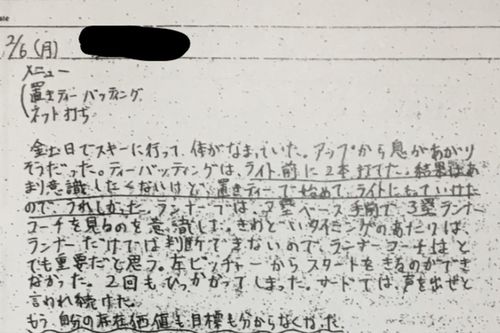 ate
2/6(月)
メニュー
置きティーバッティング
ネット打ち
金土日でスキーに行って、体がなまっていた。アップから息があがり
そうだった。ティーバッティングは、ライト前に2本打てた。結果はあ
まり意識したくないけど、置きティーで始めて、ライトにもっていけた
ので、うれしかった。ランナーでは、2塁ベース手前で3塁ランナー
コーチを見るのを意識した。きわどいタイミングのあたりは、
ランナーだけでは判断できないので、ランナーコーチはと
ても重要だと思う。左ピッチャーからスタートをきるのができ
なかった。2回もひっかかってしまった。サードでは、声を出せと
言われ続けた。
もう、自分の存在価値も目標も分からなくなった